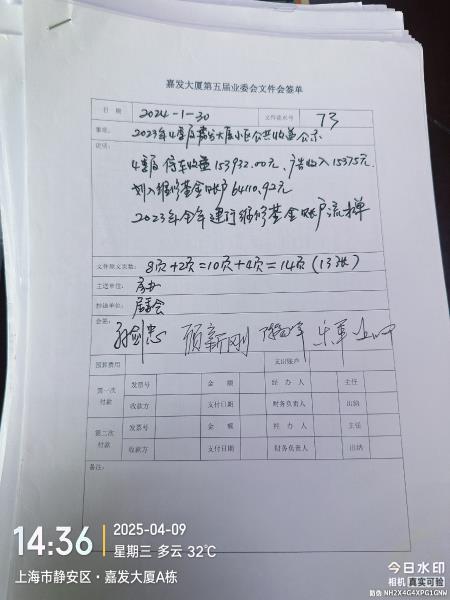 嘉发大厦第五届业委会文件会签单
日期 2024-1-30 文件流水号 73
事项: 2023年4季度嘉发大厦小区公共收益公示
说明:
4季度 停车收益 153932.00元、广告收入15375元
划入维修基金账户64110.92元
2023年全年建行维修基金账户流水单
文件原文页数: 8页+2页=10页+4页=14页(13张)
主送单位: 房办
抄送单位: 居委会
会签:
顾新刚
预算费用 支出账户
第一次付款 发票号 金额 经办人 主任
收款方 支付日期 财务负责人 出纳
第二次付款 发票号 金额 经办人 主任
收款方 支付日期 财务负责人 出纳
备注:
14:36 2025-04-09
星期三 多云 32℃
上海市静安区·嘉发大厦A栋
今日水印
相机 真实可验
防伪 NH2X4G4XPG1GNW